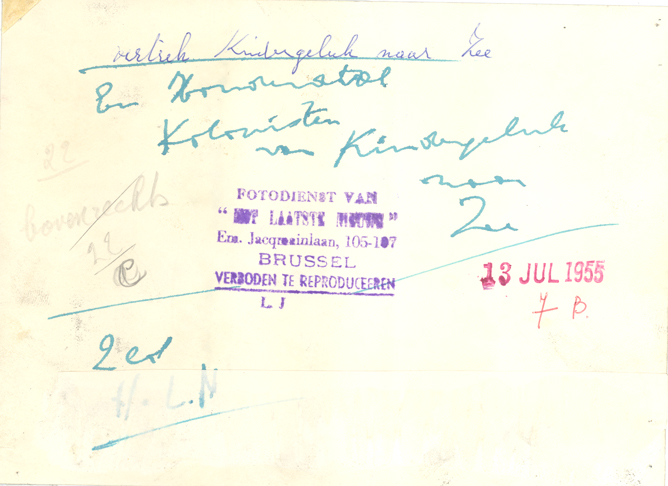 vertrek Kindergeluk naar Zee
En Honderdtal
Kolonisten
van Kindergeluk
naar
Zee
22
bovenrechts
22
FOTODIENST VAN
"HET LAATSTE NIEUWS"
Em. Jacqmainlaan, 105-107
BRUSSEL
VERBODEN TE REPRODUCEEREN
L. J
13 JUL 1955
7 B.
2 ed
H.L.N